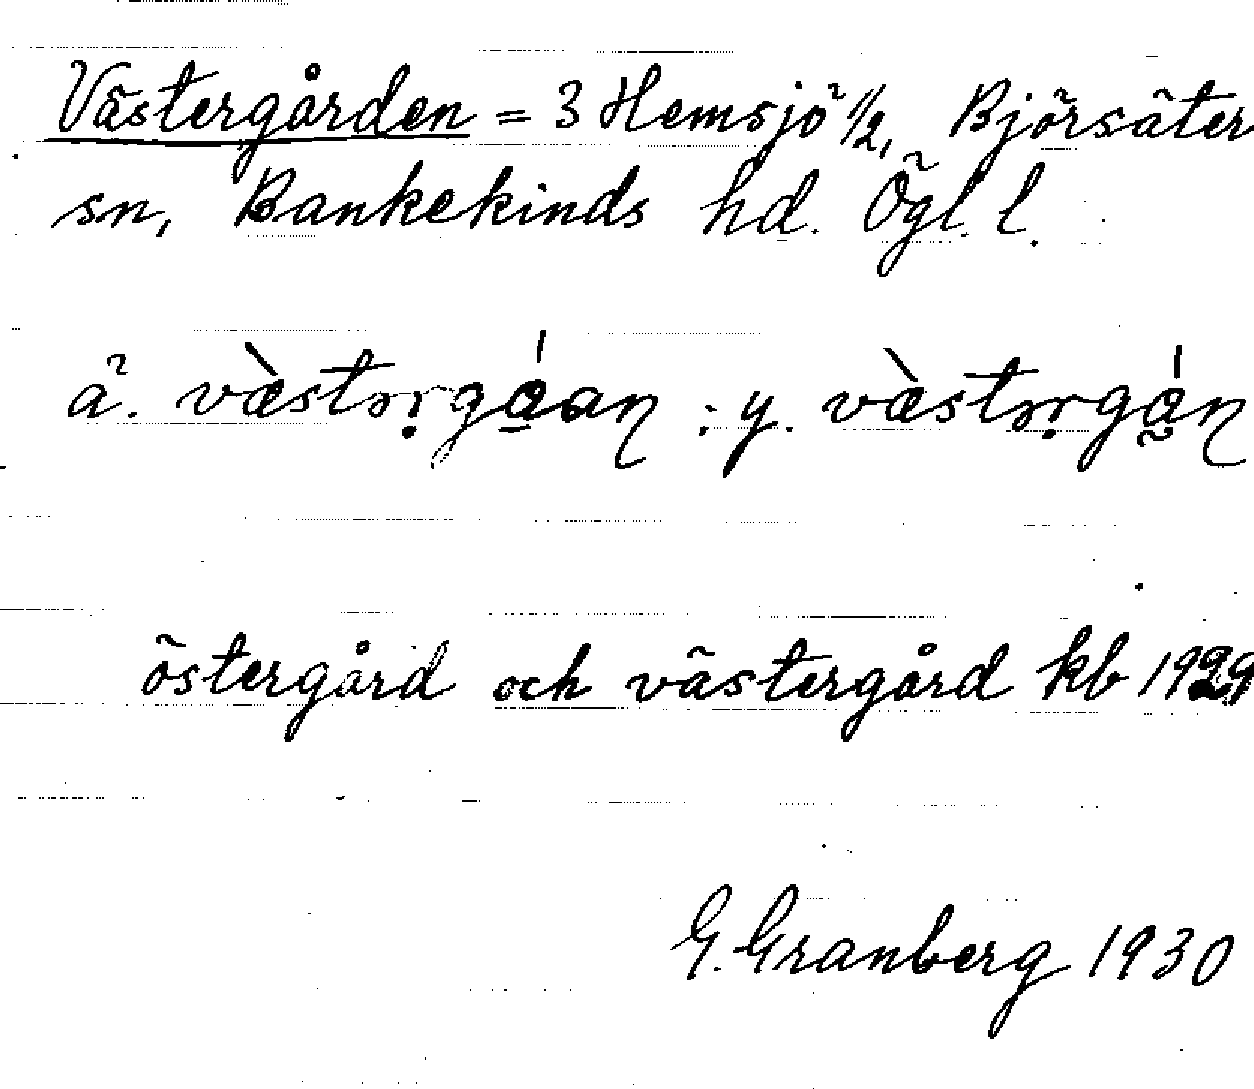 Västergården = 3 Hemsjö 1/2, Björsäter
sn, Bankekinds hd. Ögl. l.
ä. væ̀stərgáan : y. væ̀stərgán
östergård och västergård kb 1929
G. Granberg 1930